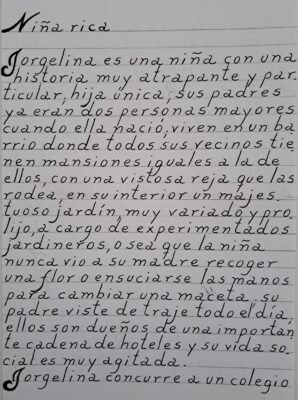 Niña rica
Jorgelina es una niña con una
historia muy atrapante y par-
ticular, hija única, sus padres
ya eran dos personas mayores
cuando ella nació, viven en un ba
rrio donde todos sus vecinos tie
nen mansiones iguales a la de
ellos, con una vistosa reja que las
rodea, en su interior un majes-
tuoso jardín, muy variado y pro
lijo, a cargo de experimentados
jardineros, o sea que la niña
nunca vio a su madre recoger
una flor o ensuciarse las manos
para cambiar una maceta, su
padre viste de traje todo el día,
ellos son dueños de una importan
te cadena de hoteles y su vida so-
cial es muy agitada.
Jorgelina concurre a un colegio